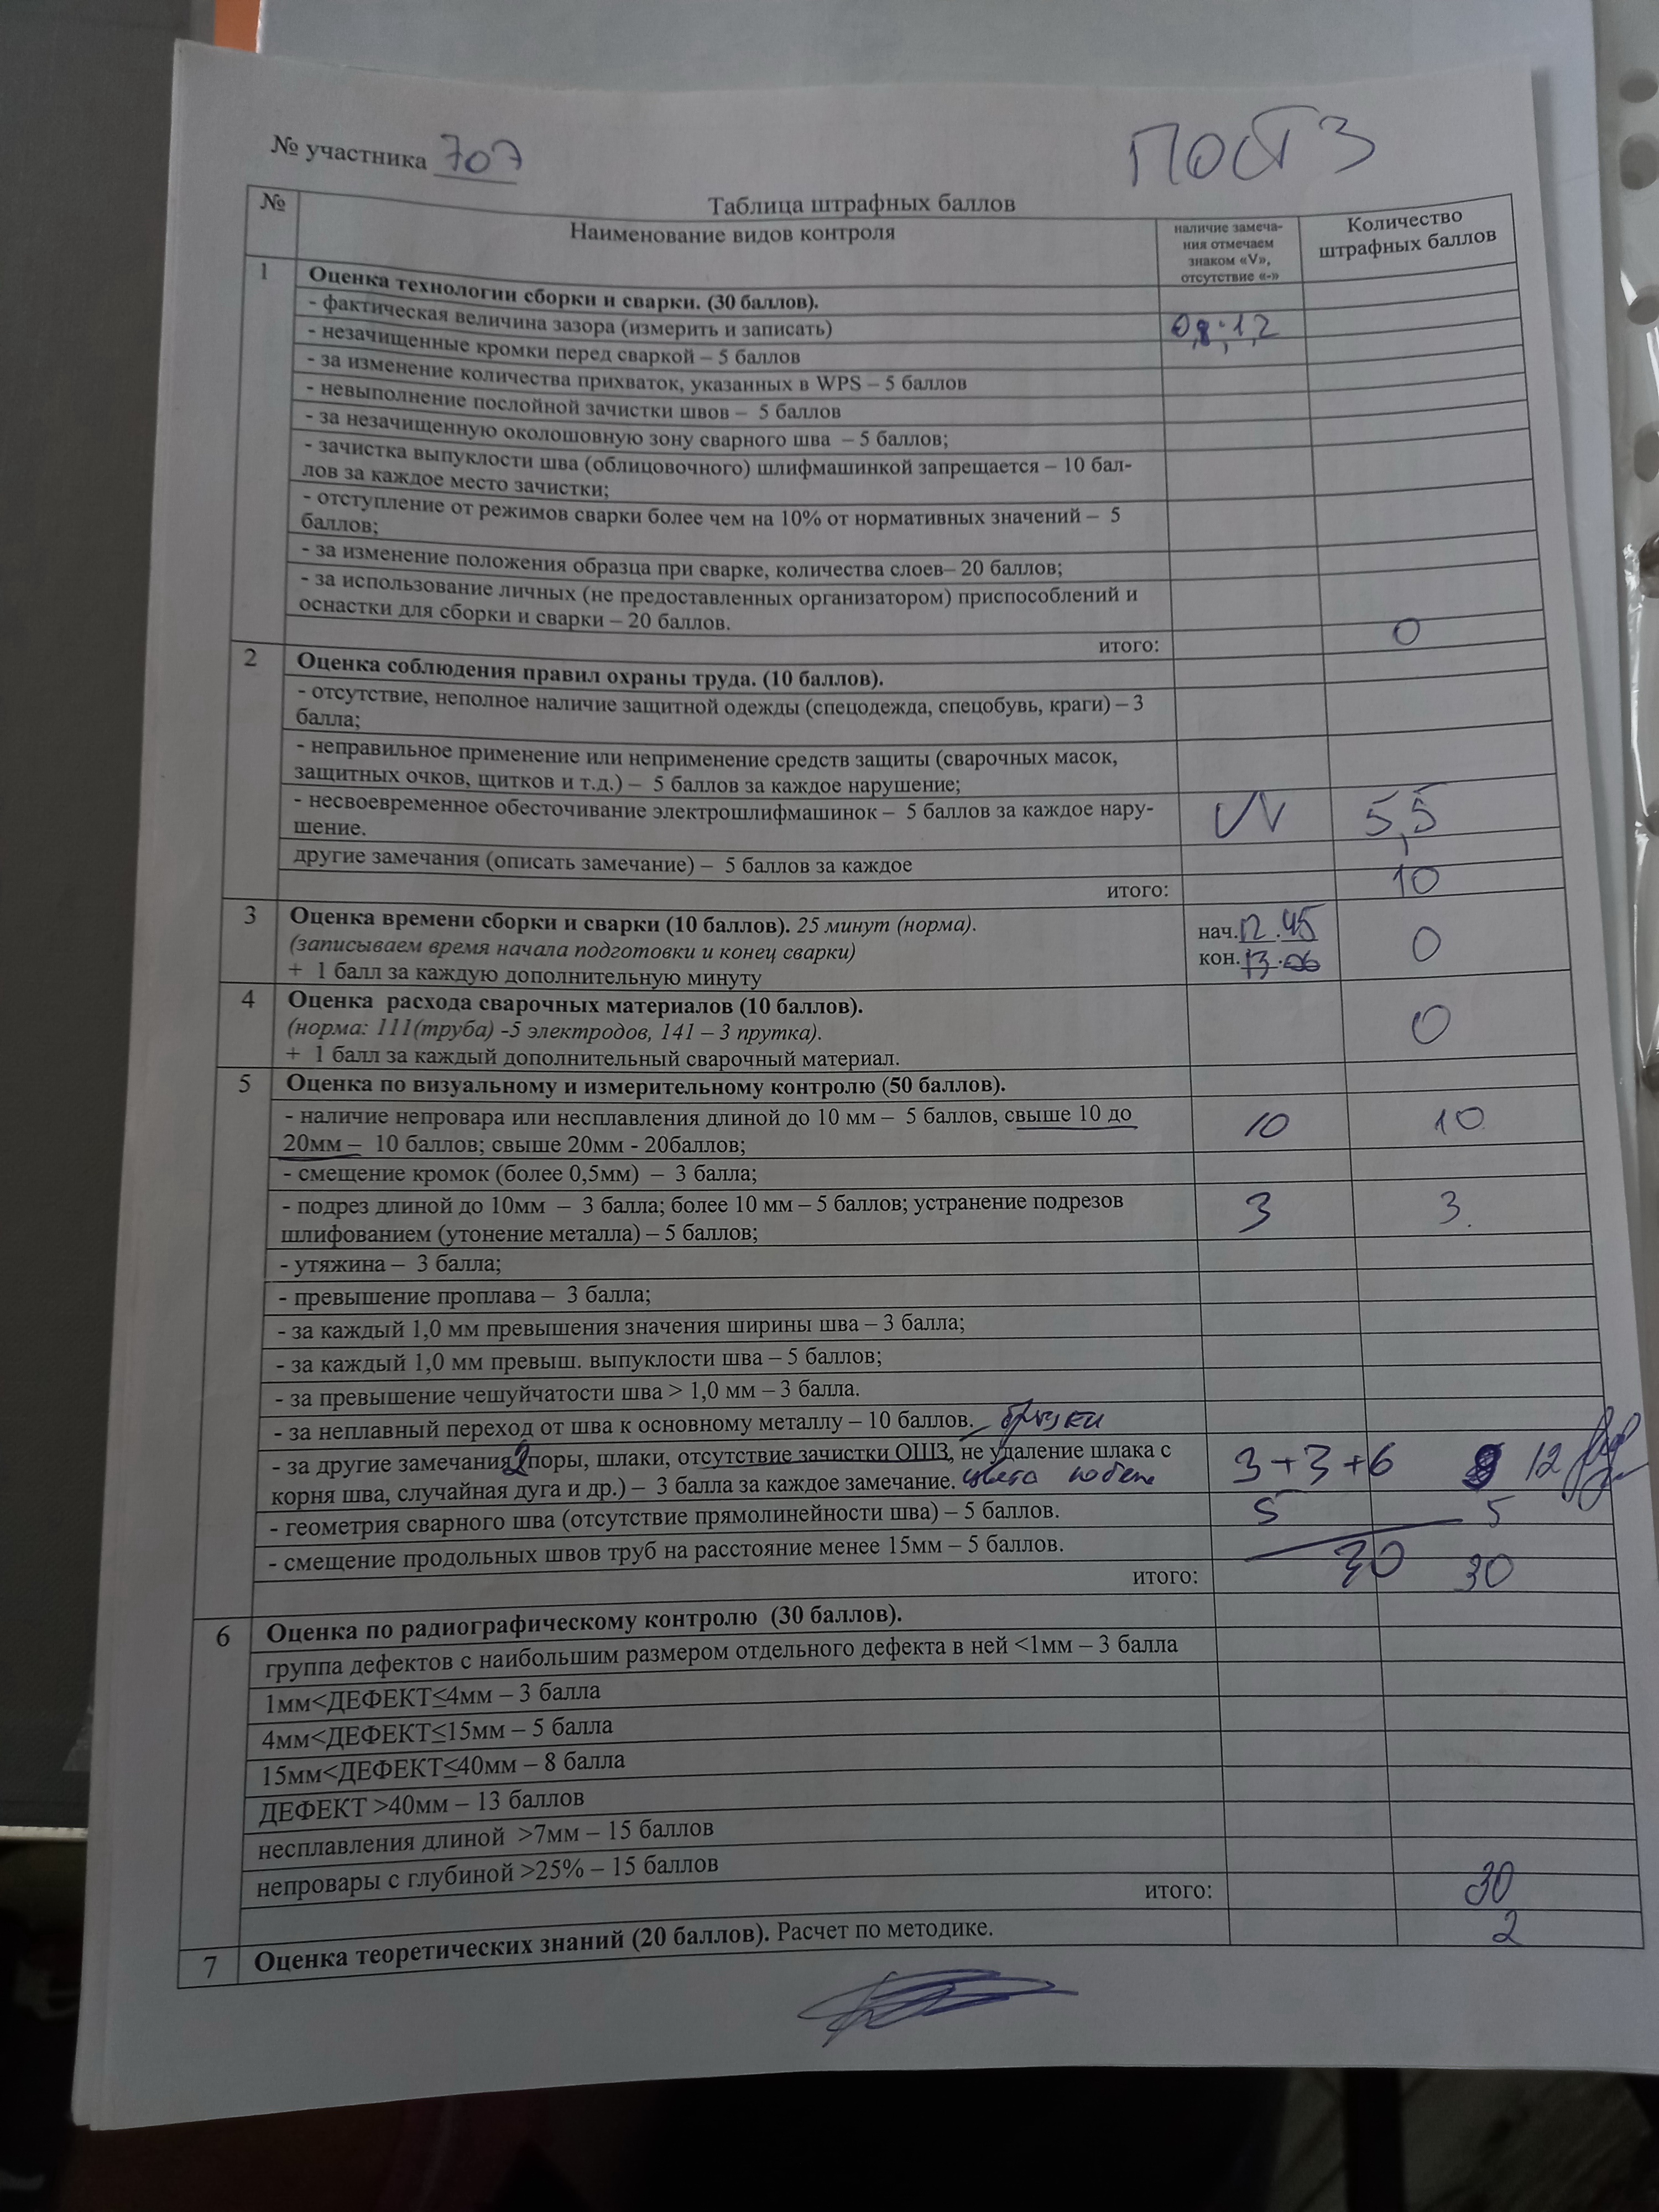 № участника 707
ПОСТ 3
Таблица штрафных баллов
№
Наименование видов контроля
наличие замеча-
ния отмечаем
знаком «V»,
отсутствие «-»
Количество
штрафных баллов
1
Оценка технологии сборки и сварки. (30 баллов).
- фактическая величина зазора (измерить и записать)
0,8; 1,2
- незачищенные кромки перед сваркой – 5 баллов
- за изменение количества прихваток, указанных в WPS – 5 баллов
- невыполнение послойной зачистки швов – 5 баллов
- за незачищенную околошовную зону сварного шва – 5 баллов;
- зачистка выпуклости шва (облицовочного) шлифмашинкой запрещается – 10 бал-
лов за каждое место зачистки;
- отступление от режимов сварки более чем на 10% от нормативных значений – 5
баллов;
- за изменение положения образца при сварке, количества слоев– 20 баллов;
- за использование личных (не предоставленных организатором) приспособлений и
оснастки для сборки и сварки – 20 баллов.
итого: 0
2
Оценка соблюдения правил охраны труда. (10 баллов).
- отсутствие, неполное наличие защитной одежды (спецодежда, спецобувь, краги) – 3
балла;
- неправильное применение или неприменение средств защиты (сварочных масок,
защитных очков, щитков и т.д.) – 5 баллов за каждое нарушение;
- несвоевременное обесточивание электрошлифмашинок – 5 баллов за каждое нару-
шение.
VV 5,5
другие замечания (описать замечание) – 5 баллов за каждое
итого: 10
3
Оценка времени сборки и сварки (10 баллов). 25 минут (норма).
(записываем время начала подготовки и конец сварки)
+ 1 балл за каждую дополнительную минуту
нач. 12.45
кон. 13.06
0
4
Оценка расхода сварочных материалов (10 баллов).
(норма: 111(труба) -5 электродов, 141 – 3 прутка).
+ 1 балл за каждый дополнительный сварочный материал.
0
5
Оценка по визуальному и измерительному контролю (50 баллов).
- наличие непровара или несплавления длиной до 10 мм – 5 баллов, свыше 10 до
20мм – 10 баллов; свыше 20мм - 20баллов;
10 10
- смещение кромок (более 0,5мм) – 3 балла;
- подрез длиной до 10мм – 3 балла; более 10 мм – 5 баллов; устранение подрезов
шлифованием (утонение металла) – 5 баллов;
3 3.
- утяжина – 3 балла;
- превышение проплава – 3 балла;
- за каждый 1,0 мм превышения значения ширины шва – 3 балла;
- за каждый 1,0 мм превыш. выпуклости шва – 5 баллов;
- за превышение чешуйчатости шва > 1,0 мм – 3 балла.
- за неплавный переход от шва к основному металлу – 10 баллов. – брызги
- за другие замечания 2 поры, шлаки, отсутствие зачистки ОШЗ, не удаление шлака с
корня шва, случайная дуга и др.) – 3 балла за каждое замечание. цвета побеж
3+3+6 12
- геометрия сварного шва (отсутствие прямолинейности шва) – 5 баллов.
5 5
- смещение продольных швов труб на расстояние менее 15мм – 5 баллов.
30
итого: 30
6
Оценка по радиографическому контролю (30 баллов).
группа дефектов с наибольшим размером отдельного дефекта в ней <1мм – 3 балла
1мм<ДЕФЕКТ≤4мм – 3 балла
4мм<ДЕФЕКТ≤15мм – 5 балла
15мм<ДЕФЕКТ≤40мм – 8 балла
ДЕФЕКТ >40мм – 13 баллов
несплавления длиной >7мм – 15 баллов
непровары с глубиной >25% – 15 баллов
итого: 30
7
Оценка теоретических знаний (20 баллов). Расчет по методике.
2